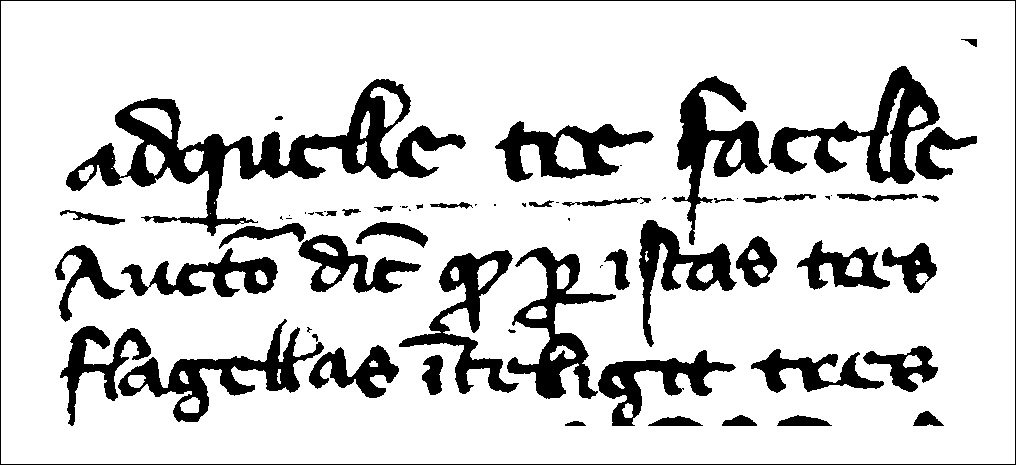 adquelle tre facelle
Auctō dīc ꝙ ꝑ istas tres
flagellas īteligit tres